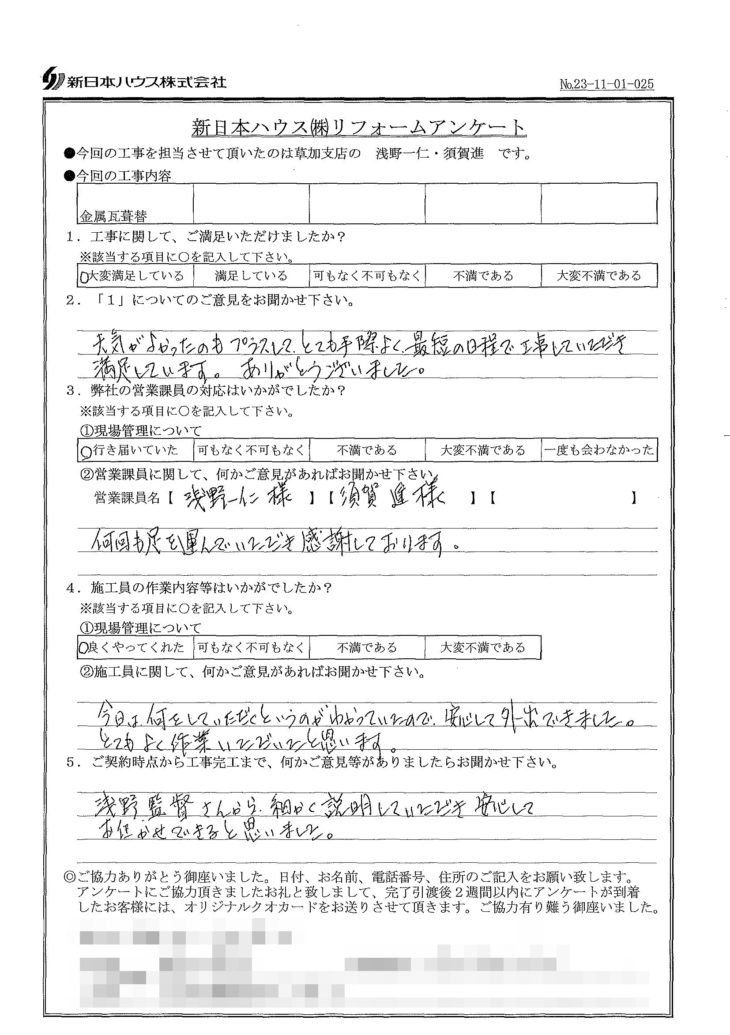 新日本ハウス株式会社
№23-11-01-025
新日本ハウス㈱リフォームアンケート
●今回の工事を担当させて頂いたのは草加支店の 浅野一仁・須賀進 です。
●今回の工事内容
金属瓦葺替
1．工事に関して、ご満足いただけましたか？
※該当する項目に○を記入して下さい。
○大変満足している 満足している 可もなく不可もなく 不満である 大変不満である
2．「1」についてのご意見をお聞かせ下さい。
天気がよかったのもプラスして、とても手際よく、最短の日程で工事していただき
満足しています。 ありがとうございました。
3．弊社の営業課員の対応はいかがでしたか？
※該当する項目に○を記入して下さい。
①現場管理について
○行き届いていた 可もなく不可もなく 不満である 大変不満である 一度も会わなかった
②営業課員に関して、何かご意見があればお聞かせ下さい。
営業課員名【 浅野一仁様 】【 須賀 進様 】【 】
何回も足を運んでいただき感謝しております。
4．施工員の作業内容等はいかがでしたか？
※該当する項目に○を記入して下さい。
①現場管理について
○良くやってくれた 可もなく不可もなく 不満である 大変不満である
②施工員に関して、何かご意見があればお聞かせ下さい。
今日は、何をしていただくというのがわかっていたので、安心して外出できました。
とてもよく作業いただいたと思います。
5．ご契約時点から工事完工まで、何かご意見等がありましたらお聞かせ下さい。
浅野監督さんから、細かく説明していただき安心して
お任かせできると思いました。
◎ご協力ありがとう御座いました。日付、お名前、電話番号、住所のご記入をお願い致します。
アンケートにご協力頂きましたお礼と致しまして、完了引渡後2週間以内にアンケートが到着
したお客様には、オリジナルクオカードをお送りさせて頂きます。ご協力有り難う御座いました。